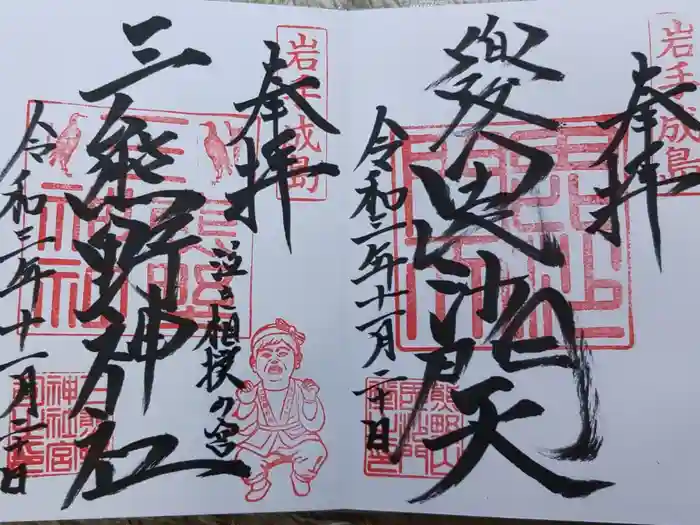 岩手成島
奉拝
兜跋毘沙門天
令和三年十一月二十日
岩手成島
奉拝
泣き相撲の宮
三熊野神社
三熊野神社
令和三年十一月二十日